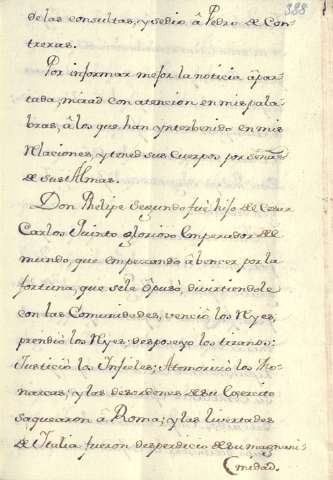 388
de las consultas, y sedio â Pedro de Con-
treras.
Por informar mejor la noticia âpar-
tada, mirad con atencion en mis pala-
bras, â los que han ynterbenido en mis
Relaciones, y tened sus Cuerpos por señas
de sus Almas.
Don Phelipe Segundo fuè hijo de Cesar
Carlos Quinto glorioso Emperador de el
mundo, que empezando â bencer por la
fortuna, que sele ôpusò, divirtiendole
con las Comunidades, venciò los Reyes,
prendiò los Reyes: desposeyo los tiranos:
Justiciò los Infieles: Atemorizò los Mo-
narcas; y las desordenes de su Exercito
saquearon â Roma; y las livertades
de Italia fueron desperdicio de su magnani-
midad.